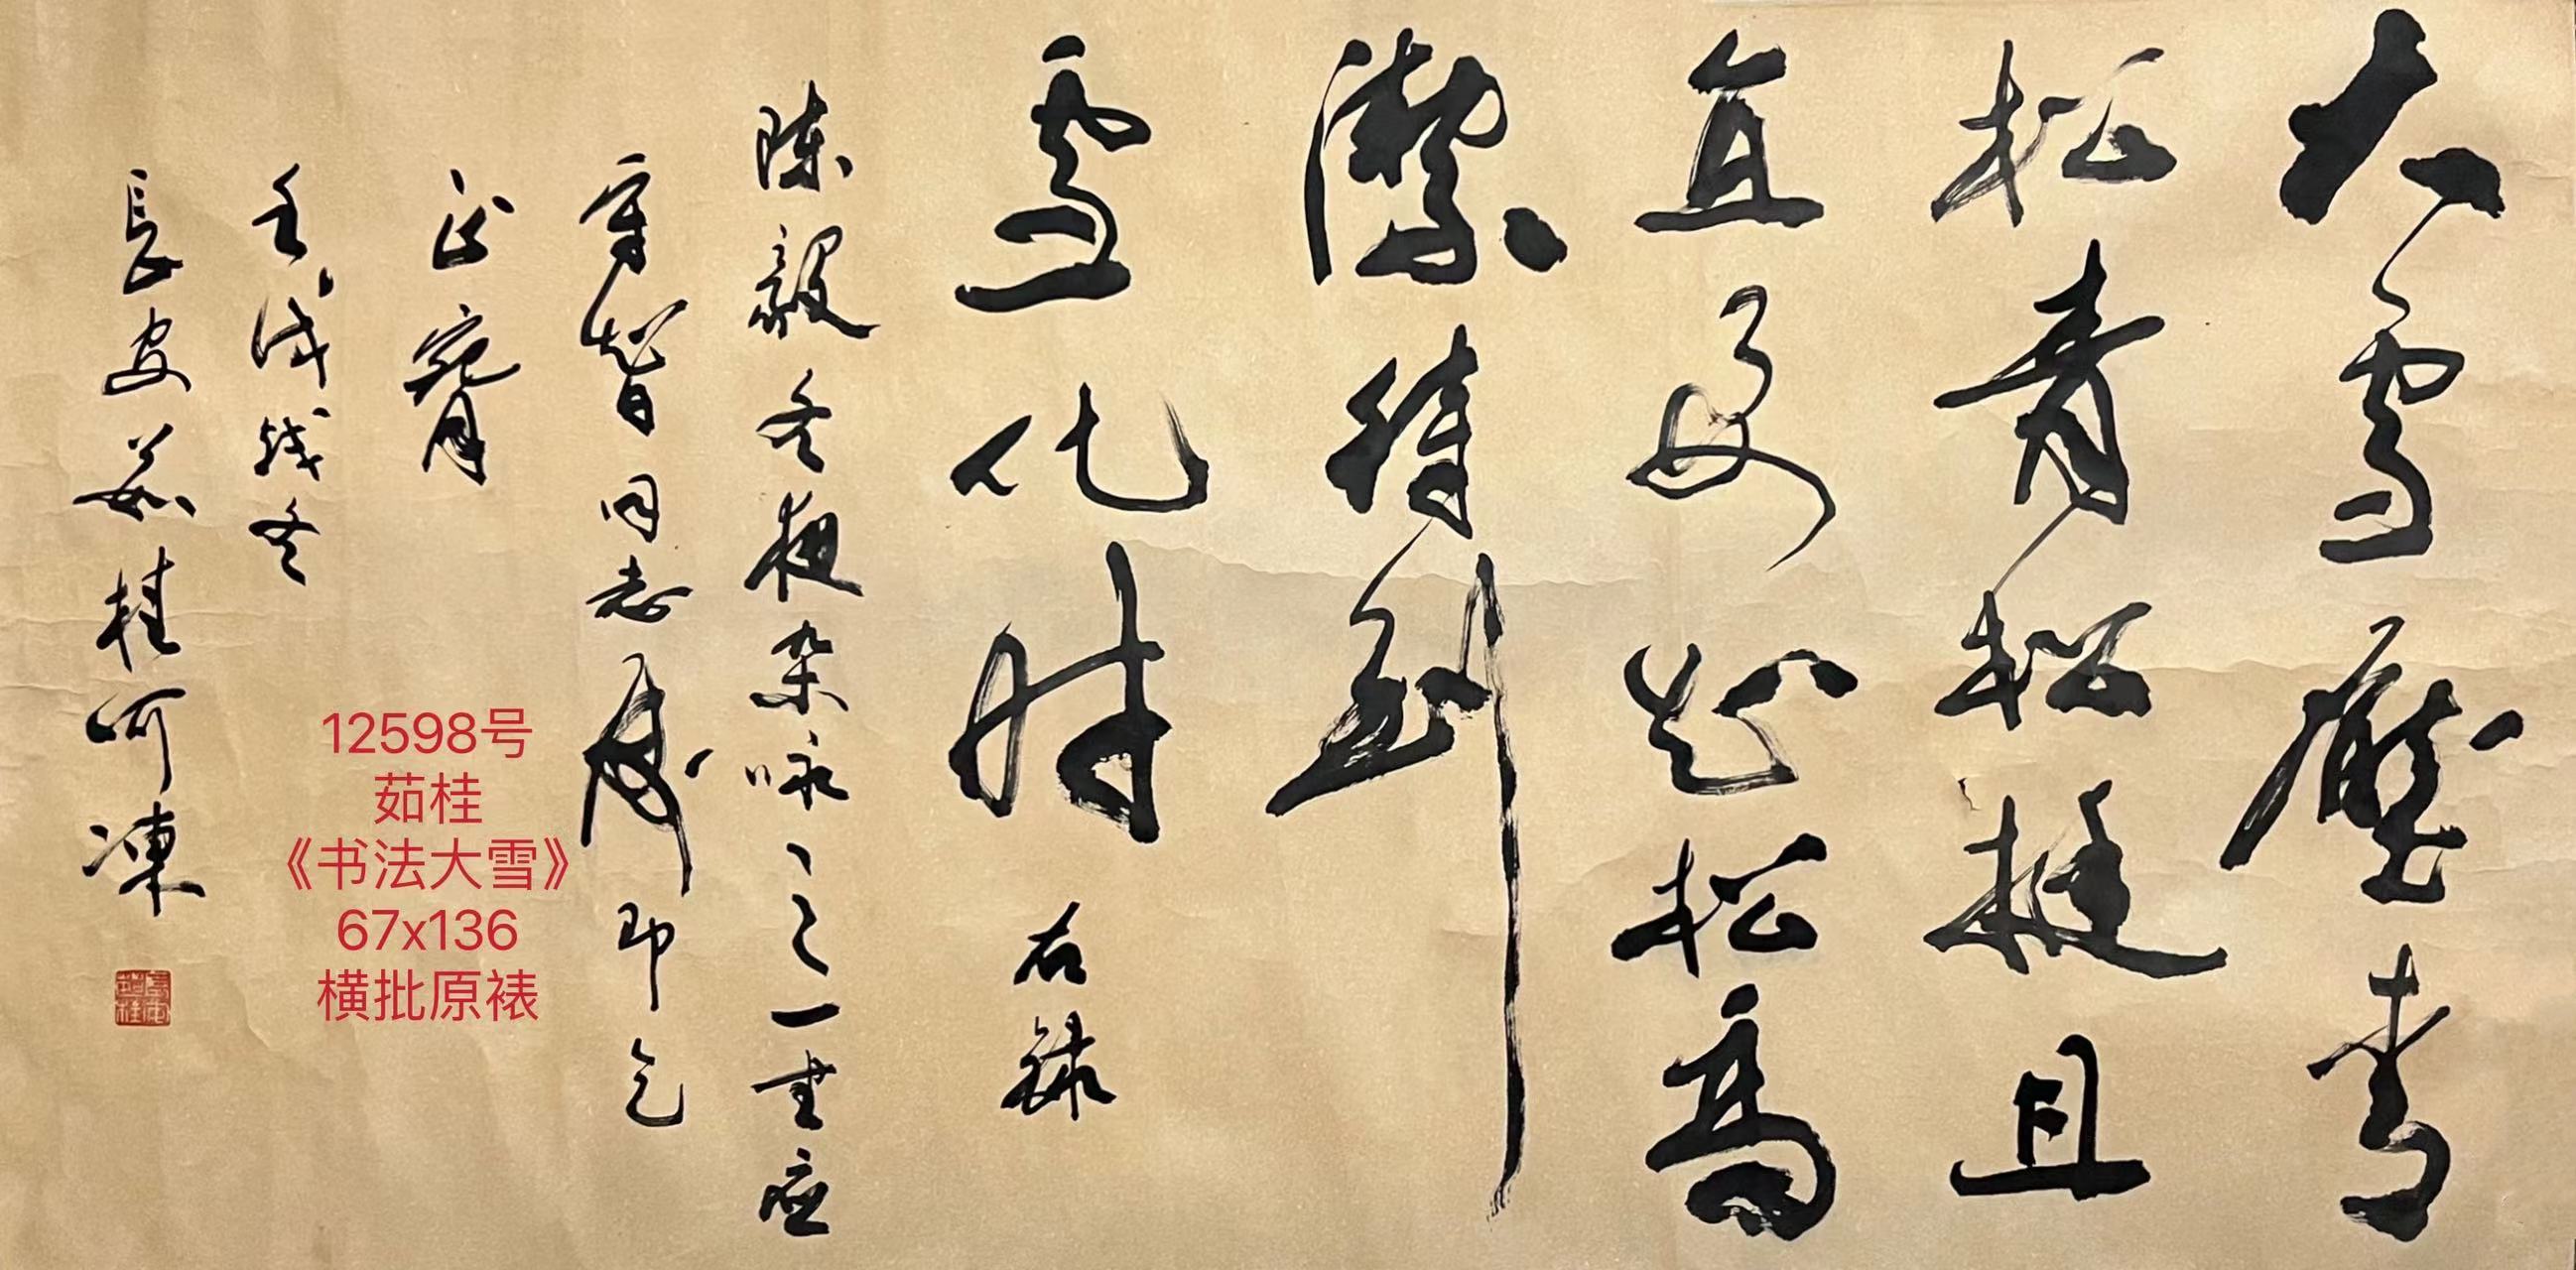 大雪壓青
松青松挺且
直要知松高
潔待到
雪化时 右録
陈毅冬夜杂咏之一書应
守智同志属即乞
正腕
壬戌残冬
長安茹桂呵凍
12598号
茹桂
《书法大雪》
67x136
横批原裱